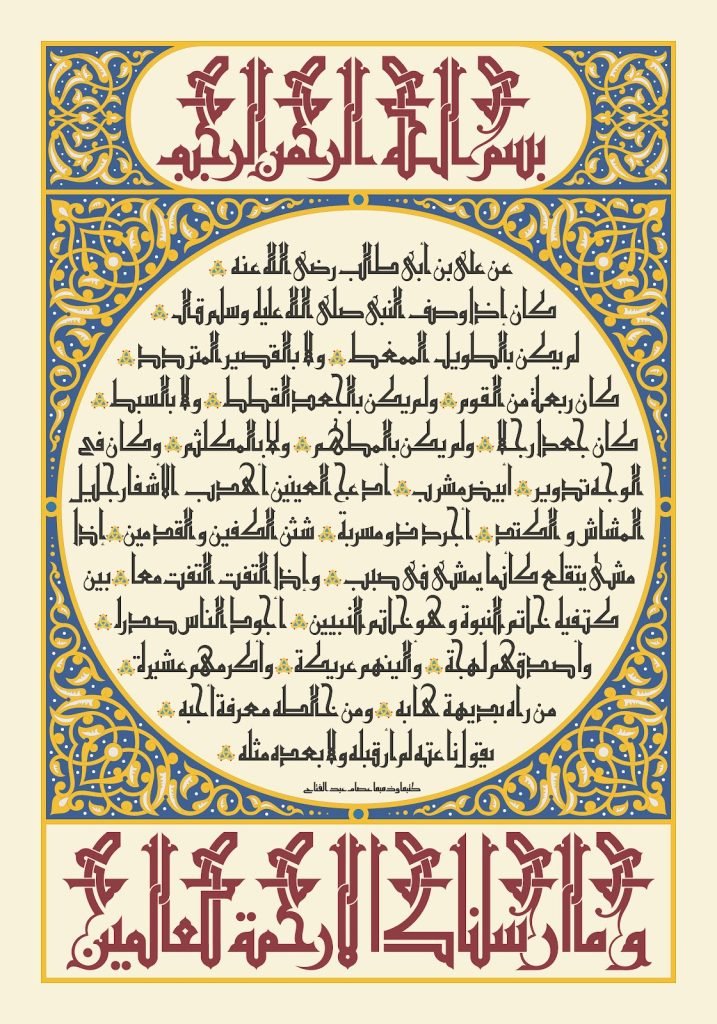 بسم الله الرحمن الرحيم
عن علي بن أبي طالب رضي الله عنه
كان إذا وصف النبي صلى الله عليه وسلم قال
لم يكن بالطويل الممغط ولا بالقصير المتردد
كان ربعة من القوم ولم يكن بالجعد القطط ولا بالسبط
كان جعدا رجلا ولم يكن بالمطهم ولا بالمكلثم وكان في
الوجه تدوير أبيض مشرب أدعج العينين أهدب الأشفار جليل
المشاش و الكتد أجرد ذو مسربة شثن الكفين و القدمين إذا
مشى يتقلع كأنما يمشي في صبب وإذا التفت التفت معا بين
كتفيه خاتم النبوة وهو خاتم النبيين أجود الناس صدرا
وأصدقهم لهجة وألينهم عريكة وأكرمهم عشيرة
من رآه بديهة هابه ومن خالطه معرفة أحبه
يقول ناعته لم أر قبله ولا بعده مثله
عصام عبد الفتاح
وما أرسلناك إلا رحمة للعالمين